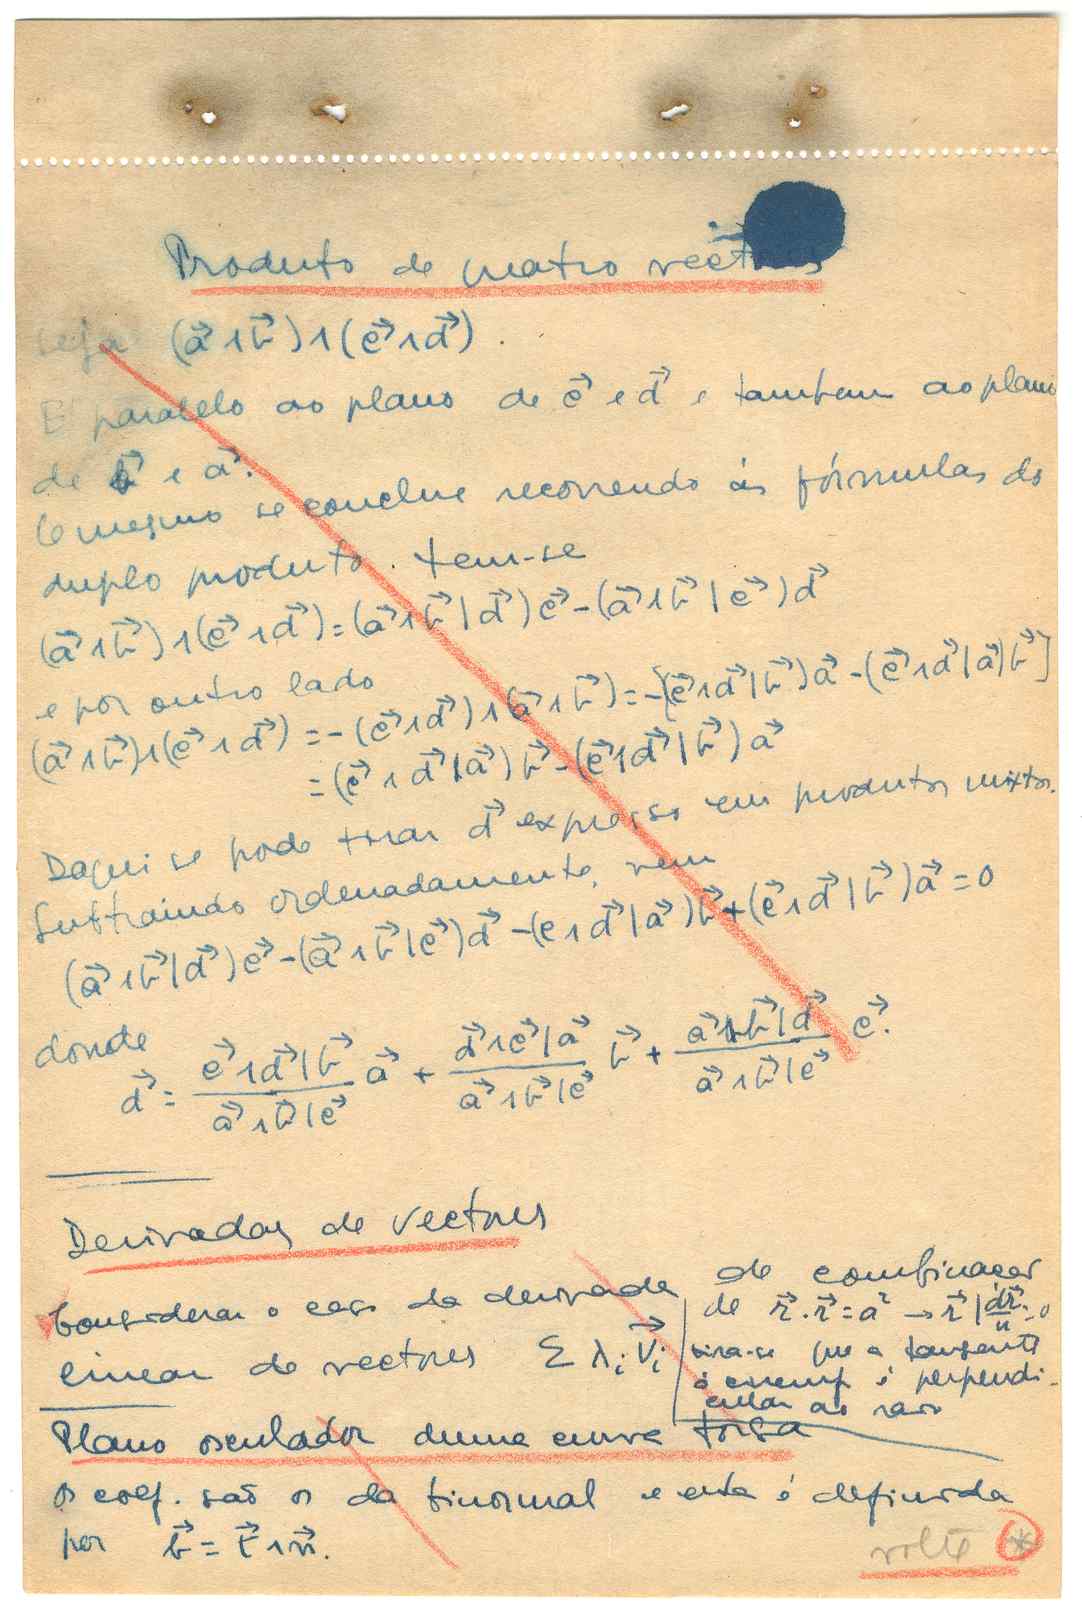 Produto de quatro vectores
Seja (a⃗ ∧ b⃗) ∧ (c⃗ ∧ d⃗).
É paralelo ao plano de c⃗ e d⃗ e tambem ao plano
de b⃗ e a⃗.
O mesmo se conclue recorrendo ás fórmulas do
duplo produto. Tem-se
(a⃗ ∧ b⃗) ∧ (c⃗ ∧ d⃗) = (a⃗ ∧ b⃗ | d⃗) c⃗ - (a⃗ ∧ b⃗ | c⃗) d⃗
e por outro lado
(a⃗ ∧ b⃗) ∧ (c⃗ ∧ d⃗) = - (c⃗ ∧ d⃗) ∧ (a⃗ ∧ b⃗) = -[(c⃗ ∧ d⃗ | b⃗) a⃗ - (c⃗ ∧ d⃗ | a⃗) b⃗]
= (c⃗ ∧ d⃗ | a⃗) b⃗ - (c⃗ ∧ d⃗ | b⃗) a⃗
Daqui se pode tirar d⃗ expresso em produtos mixtos.
Subtraindo ordenadamente, vem
(a⃗ ∧ b⃗ | d⃗) c⃗ - (a⃗ ∧ b⃗ | c⃗) d⃗ - (c ∧ d⃗ | a⃗) b⃗ + (c⃗ ∧ d⃗ | b⃗) a⃗ = 0
donde
d⃗ = (c⃗ ∧ d⃗ | b⃗)/(a⃗ ∧ b⃗ | c⃗) a⃗ + (d⃗ ∧ c⃗ | a⃗)/(a⃗ ∧ b⃗ | c⃗) b⃗ + (a⃗ ∧ b⃗ | d⃗)/(a⃗ ∧ b⃗ | c⃗) c⃗.
Derivadas de vectores
Considerar o caso da derivada de combinações
linear de vectores Σ λᵢ V⃗ᵢ
de r⃗ . r⃗ = a² → r⃗ | dr⃗ = 0
tira-se que a tangente
á circunf é perpendi-
cular ao raio
Plano osculador duma curva torsa
os coef. são os da binormal e esta é definida
por b⃗ = t⃗ ∧ n⃗.
volte *